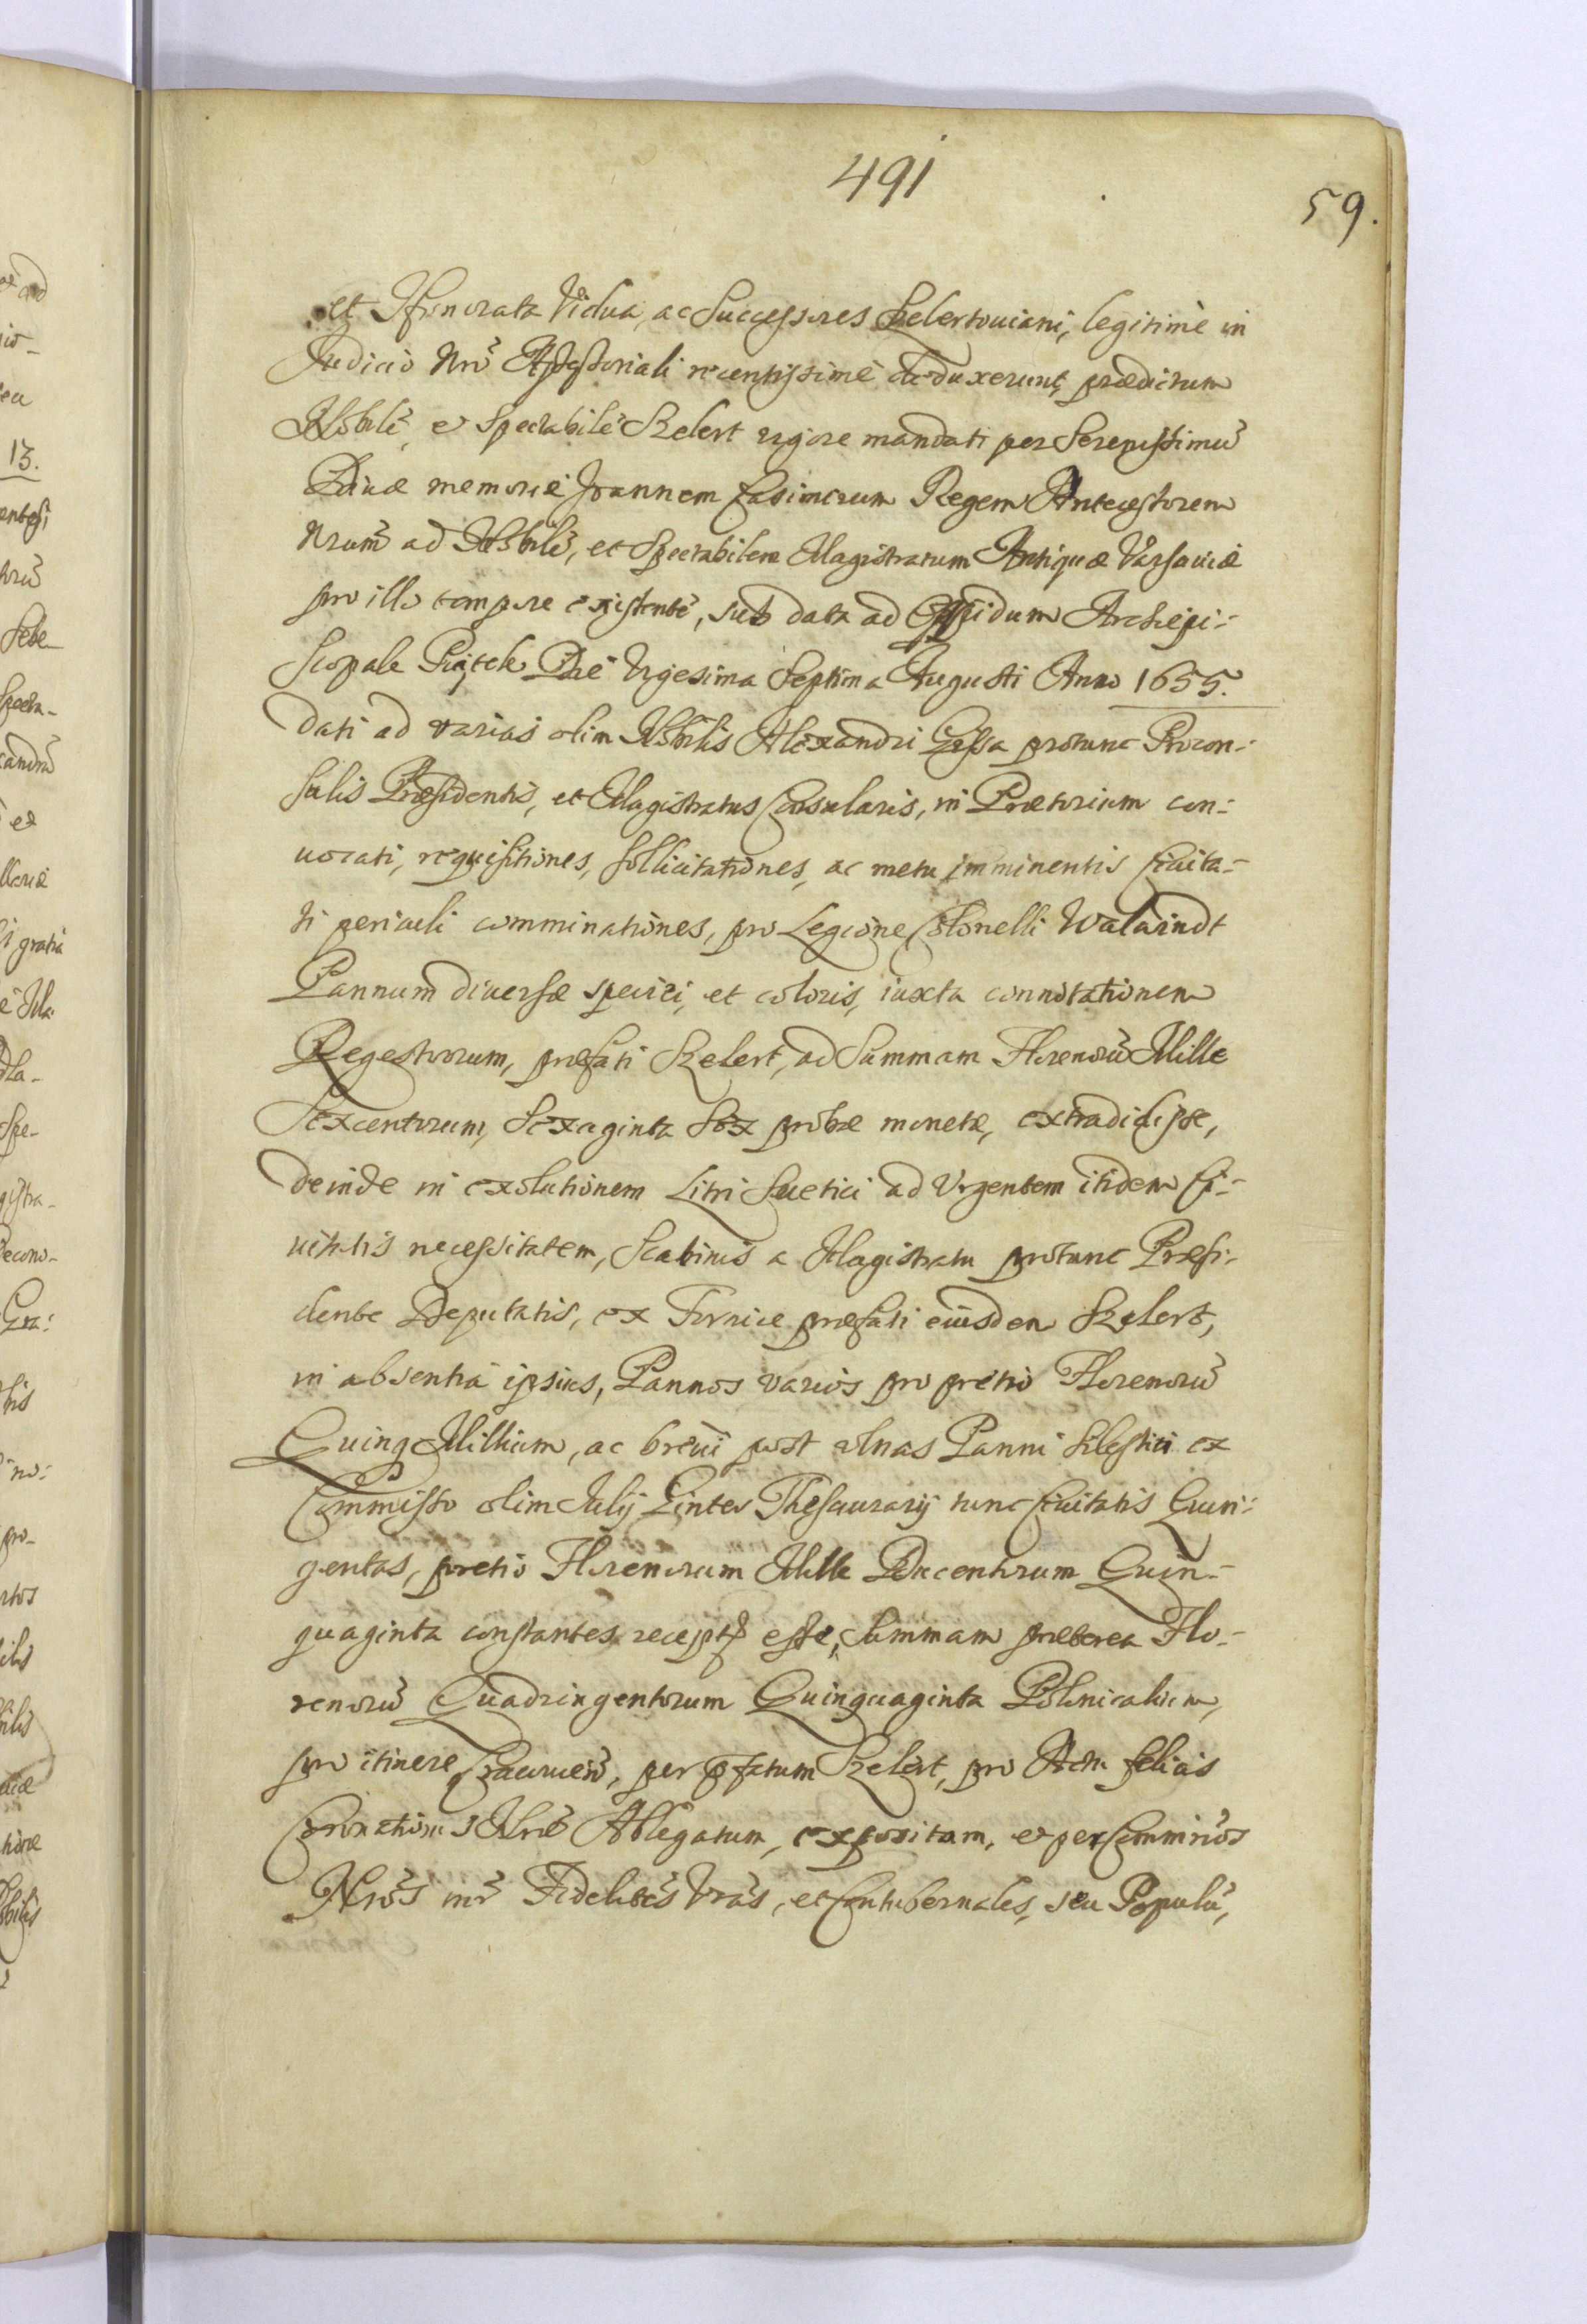 491
59.
et Honorata Vidua, ac Successores Szelertouiani, legitimè in
Judicio Nrõ Assessoriali recentissimè deduxerunt, prædictum
Nobilẽ, et Spectabilẽ Szelert vigore mandati per Serenissimũ
Diuæ memoriæ Joannem Casimirum Regem Antecessorem
Nrum̃ ad Nobilẽ, et Spectabilem Magistratum Antiquæ Varsauiæ
pro illo tempore existentẽ, sub data ad Oppidum Archiepi-
scopale Piątek Die Vigesima Septima Augusti Anno 1655.
dati ad varias olim Nobilis Alexandri Gissa protunc Procon-
sulis Præsidentis, et Magistratus Consularis, in Prætorium con-
uocati, requisitiones, sollicitationes, ac metu imminentis Ciuita-
ti periculi comminationes, pro Legione Colonelli Walaindt
Pannum diuersæ speciei, et coloris, iuxta connotationem
Regestrorum, præfati Szelert, ad Summam Florenorũ Mille
Sexcentorum, Sexaginta Sex probæ monetæ, extradidisse,
deinde in exolutionem Litri Suetici ad Vrgentem itidem Ci-
uitatis necessitatem, Scabinis a Magistratu protunc Præsi-
dente Deputatis, ex Fornice præfati eiusdem Szelert,
in absentia ipsius, Pannos varios pro pretio Florenorũ
Quinq Millium, ac breui post vlnas Panni Silesitici ex
Commisso olim Julij Ginter Thesaurarij tunc Ciuitatis Quin-
gentas, pretio Florenorum Mille Ducentorum Quin-
quaginta constantes receptas esse, Summam præterea Flo-
renorũ Quadringentorum Quinquaginta Polonicalium,
pro itinere Cracouien̄, per pfatum Szelert, pro Actu felicis
Coronationis Nræ̃ Ablegatum, expositam, et per Comminos̃
Nros̃ inr̃ Fidelitẽs Vrãs, et Contubernales, seu Populũ,